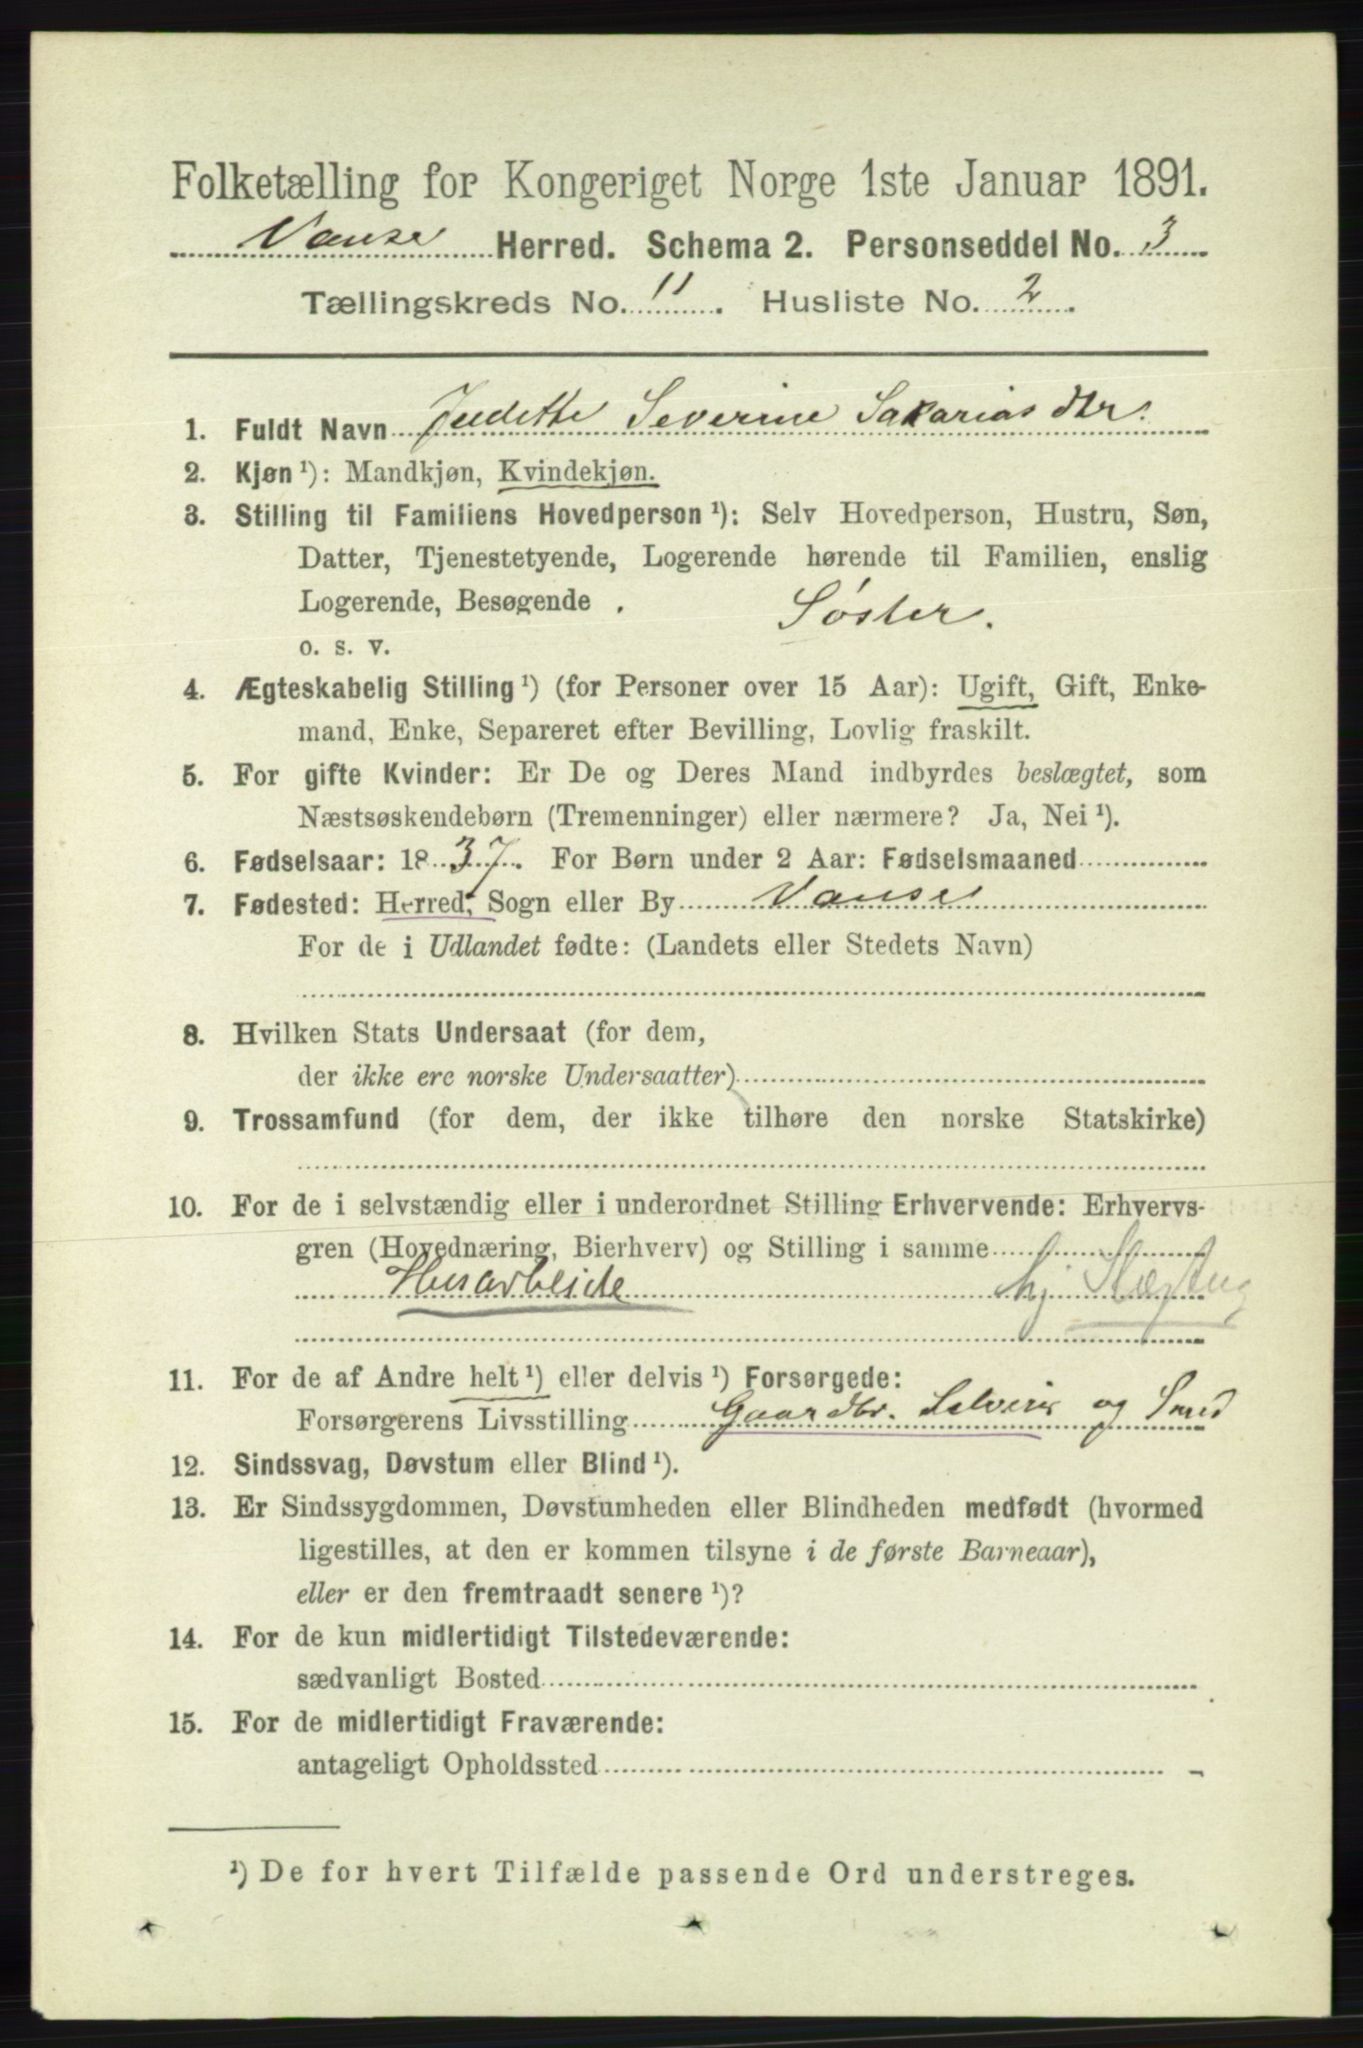 Folketælling for Kongeriget Norge 1ste Januar 1891.
Vanse Herred. Schema 2. Personseddel No. 3
Tællingskreds No. 11. Husliste No. 2.
1. Fuldt Navn Judithe Severine Sakariasdtr.
2. Kjøn ¹): Mandkjøn, Kvindekjøn.
3. Stilling til Familiens Hovedperson ¹): Selv Hovedperson, Hustru, Søn,
Datter, Tjenestetyende, Logerende hørende til Familien, enslig
Logerende, Besøgende . Søster.
o. s. v.
4. Ægteskabelig Stilling ¹) (for Personer over 15 Aar): Ugift, Gift, Enke-
mand, Enke, Separeret efter Bevilling, Lovlig fraskilt.
5. For gifte Kvinder: Er De og Deres Mand indbyrdes beslægtet, som
Næstsøskendebørn (Tremenninger) eller nærmere? Ja, Nei ¹).
6. Fødselsaar: 1837. For Børn under 2 Aar: Fødselsmaaned
7. Fødested: Herred, Sogn eller By Vanse
For de i Udlandet fødte: (Landets eller Stedets Navn)
8. Hvilken Stats Undersaat (for dem,
der ikke ere norske Undersaatter)
9. Trossamfund (for dem, der ikke tilhøre den norske Statskirke)
10. For de i selvstændig eller i underordnet Stilling Erhvervende: Erhvervs-
gren (Hovednæring, Bierhverv) og Stilling i samme
Husarbeide hj Slægtng
11. For de af Andre helt ¹) eller delvis ¹) Forsørgede:
Forsørgerens Livsstilling Gaardbr. Selveier og Smed
12. Sindssvag, Døvstum eller Blind ¹).
13. Er Sindssygdommen, Døvstumheden eller Blindheden medfødt (hvormed
ligestilles, at den er kommen tilsyne i de første Barneaar),
eller er den fremtraadt senere ¹)?
14. For de kun midlertidigt Tilstedeværende:
sædvanligt Bosted
15. For de midlertidigt Fraværende:
antageligt Opholdssted
¹) De for hvert Tilfælde passende Ord understreges.